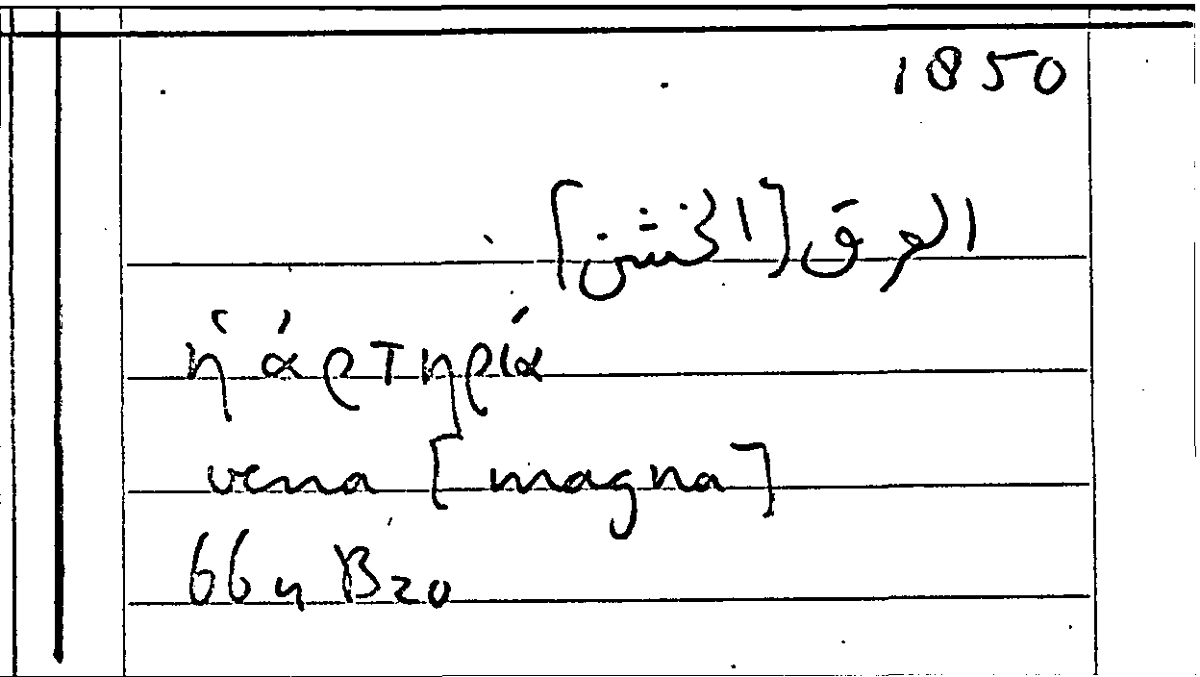 1850
العرق [الخشن]
ἡ ἀρτηρία
vena [magna]
664 B20